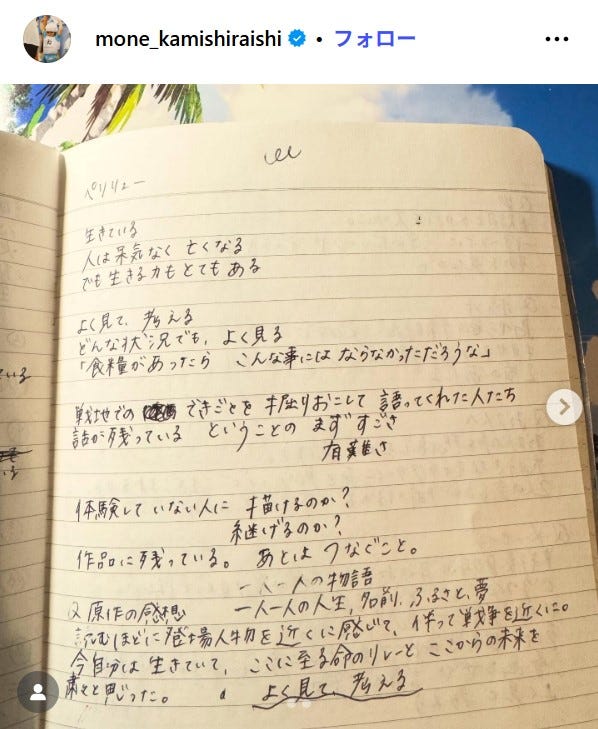 mone_kamishiraishi • フォロー
ペリリュー
生きている
人は呆気なく 亡くなる
でも生きる力もとてもある
よく見て、考える
どんな状況でも、よく見る
「食糧があったら こんな事には ならなかっただろうな」
戦地での できごとを 掘りおこして 語ってくれた人たち
話が残っている ということの まず すごさ
有難さ
体験して いない人に 描けるのか?
継げるのか?
作品に残っている。 あとは つなぐこと。
一人一人の物語
原作の感想 一人一人の人生、名前、ふるさと、夢
読むほどに登場人物を近くに感じて、伴って戦争を近くに。
今自分は生きていて、ここに至る命のリレーと ここからの未来を
粛々と思った。 よく見て、考える